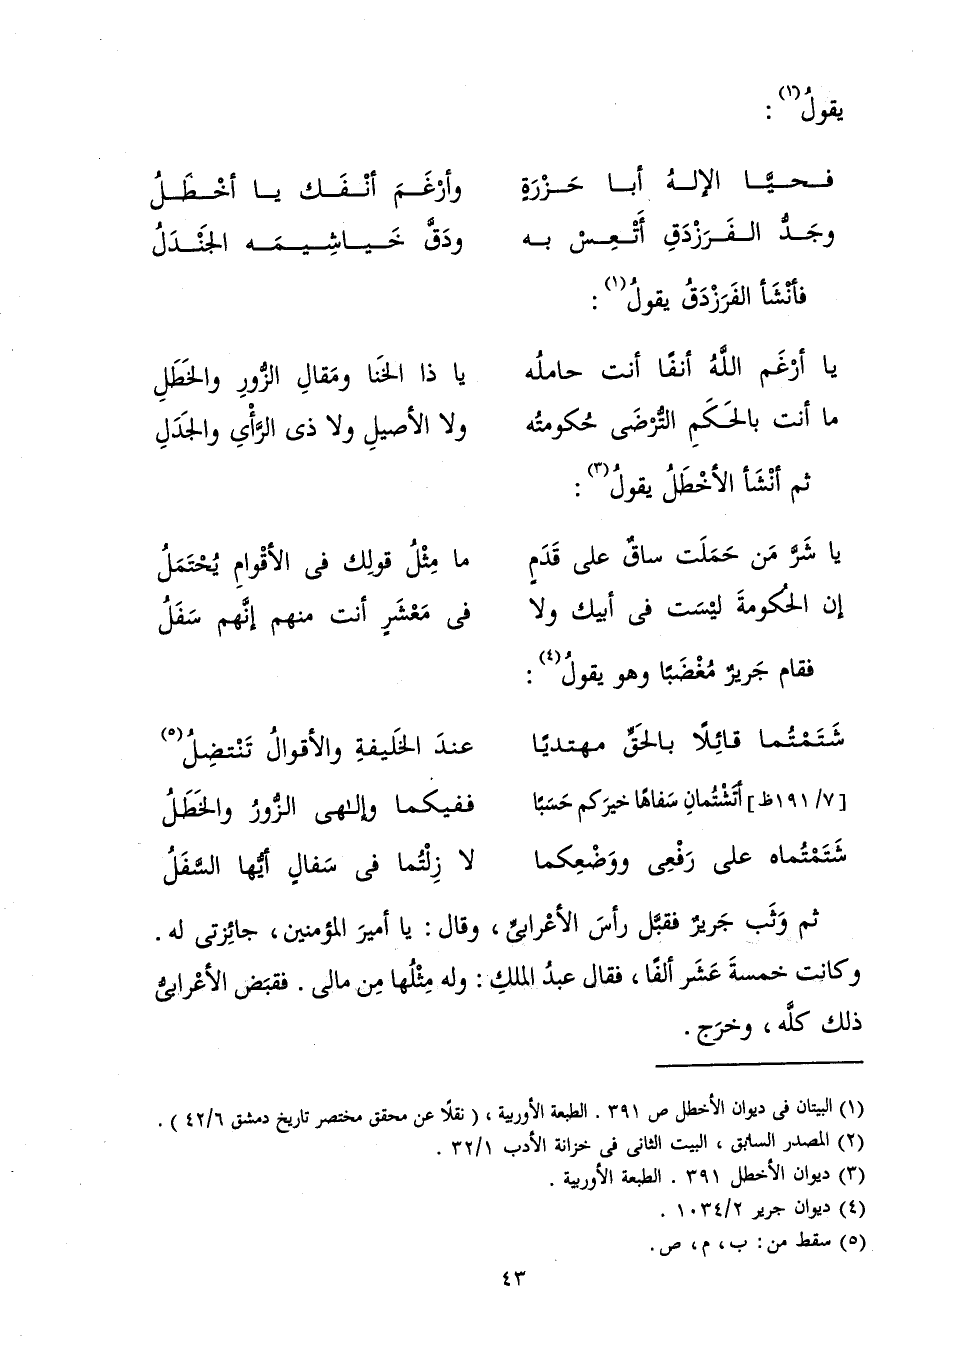 يقولُ(١) :
فحيَّا الإلهُ أبا حَزْرَةٍ وأرْغَمَ أنْفَك يا أخْطَلُ
وجَدُّ الفَرَزْدَقِ أَتْعِسْ به ودَقَّ خَياشِيمَه الجَنْدَلُ
فأنْشَأ الفَرَزْدَقُ يقولُ(١) :
يا أرْغَم اللَّهُ أنفًا أنت حاملُه يا ذا الخَنا ومَقالِ الزُّورِ والخَطَلِ
ما أنت بالحَكَمِ التُّرْضَى حُكومتُه ولا الأصيلِ ولا ذى الرَّأْىِ والجَدَلِ
ثم أنْشَأ الأخْطَلُ يقولُ(٣) :
يا شَرَّ مَن حَمَلَت ساقٌ على قَدَمٍ ما مِثْلُ قولِك فى الأقْوامِ يُحْتَمَلُ
إن الحُكومةَ ليْسَت فى أبيك ولا فى مَعْشَرٍ أنت منهم إنَّهم سَفَلُ
فقام جَريرٌ مُغْضَبًا وهو يقولُ(٤) :
شَتَمْتُما قائِلًا بالحَقِّ مهتديًا عندَ الخَليفةِ والأقوالُ تَنْتضِلُ(٥)
[٧/ ١٩١ظ] أتَشْتُمانِ سَفاهًا خيرَكم حَسَبًا ففيكما وإلٰهى الزُّورُ والخَطَلُ
شَتَمْتُماه على رَفْعِى ووَضْعِكما لا زِلْتُما فى سَفالٍ أيُّها السَّفَلُ
ثم وَثَب جَريرٌ فقبَّل رأسَ الأعْرابىِّ ، وقال : يا أميرَ المؤمنين ، جائِزتى له .
وكانت خمسةَ عَشَر ألفًا ، فقال عبدُ الملكِ : وله مِثْلُها مِن مالى . فقبَض الأعْرابىُّ
ذلك كلَّه ، وخرَج .
(١) البيتان فى ديوان الأخطل ص ٣٩١ . الطبعة الأوربية ، ( نقلًا عن محقق مختصر تاريخ دمشق ٤٢/٦ ) .
(٢) المصدر السابق ، البيت الثانى فى خزانة الأدب ٣٢/١ .
(٣) ديوان الأخطل ٣٩١ . الطبعة الأوربية .
(٤) ديوان جرير ١٠٣٤/٢ .
(٥) سقط من : ب ، م ، ص .
٤٣